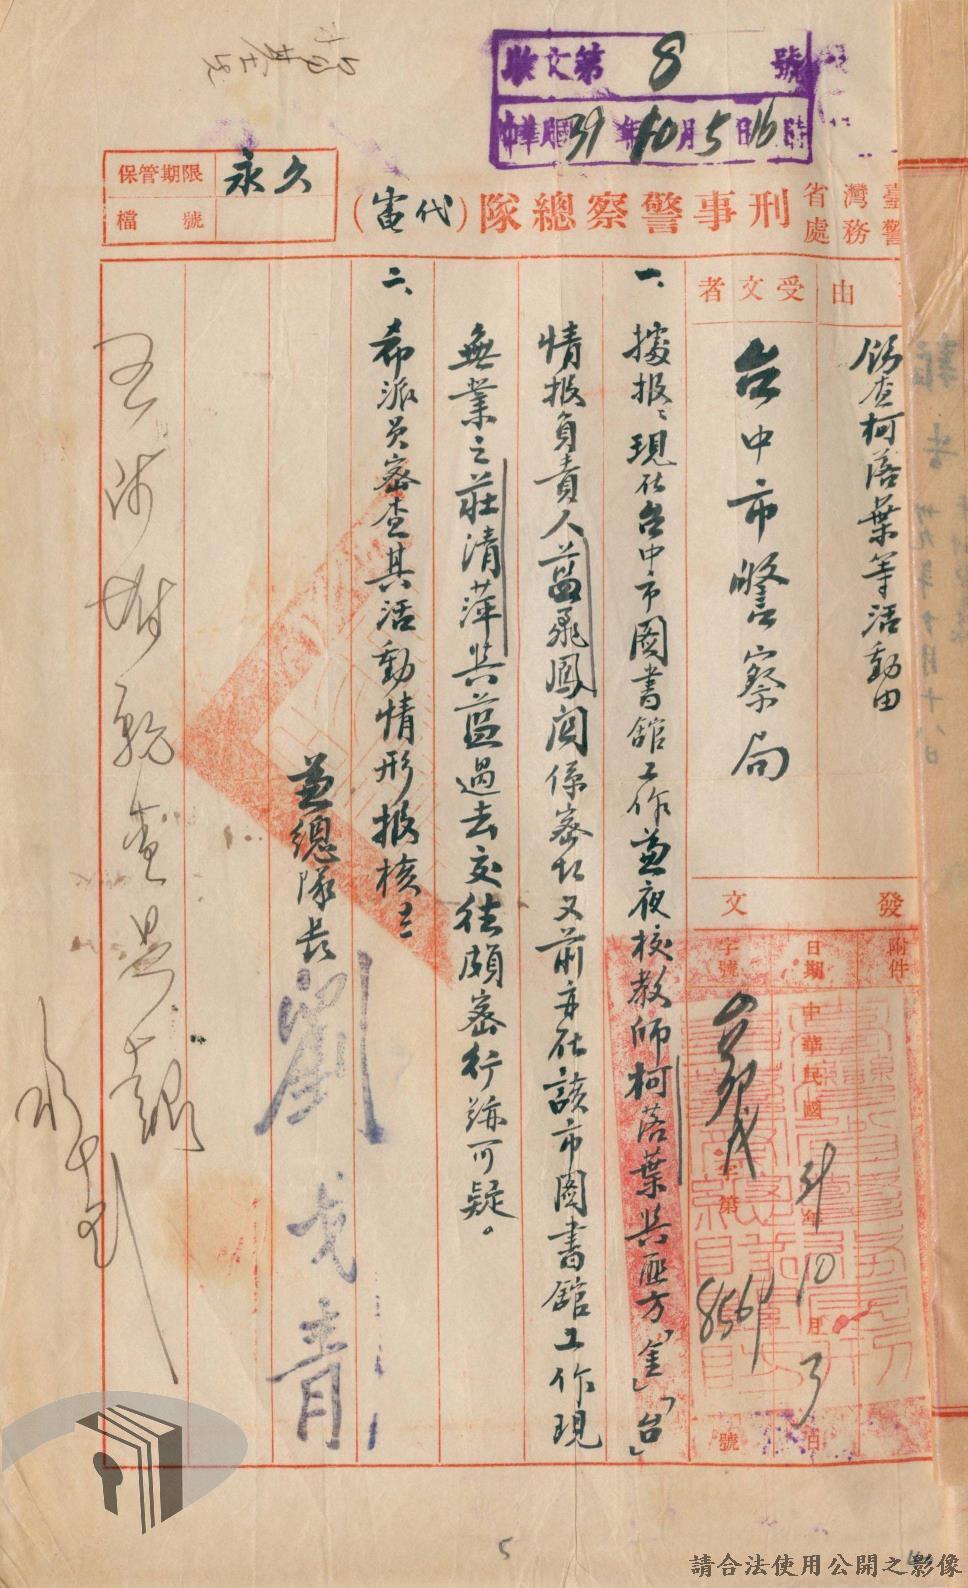 收文第 8 號
中華民國39年10月5日16時
保管期限 永久
檔號
臺灣省警務處刑事警察總隊（代電）
由
飭查柯落葉等活動由
受文者
台中市警察局
發文
附件
日期 中華民國39年10月3日
字號 字第8564號
一、據报：現在台中市圖書舘工作兼夜校教師柯落葉與匪方「金」「台」
情报負責人藍飛鳳関係密切又前亦在該市圖書舘工作現
無業之莊清萍與藍過去交往頗密行跡可疑。
二、希派员密查其活動情形报核
兼總隊長 劉戈青
5
請合法使用公開之影像